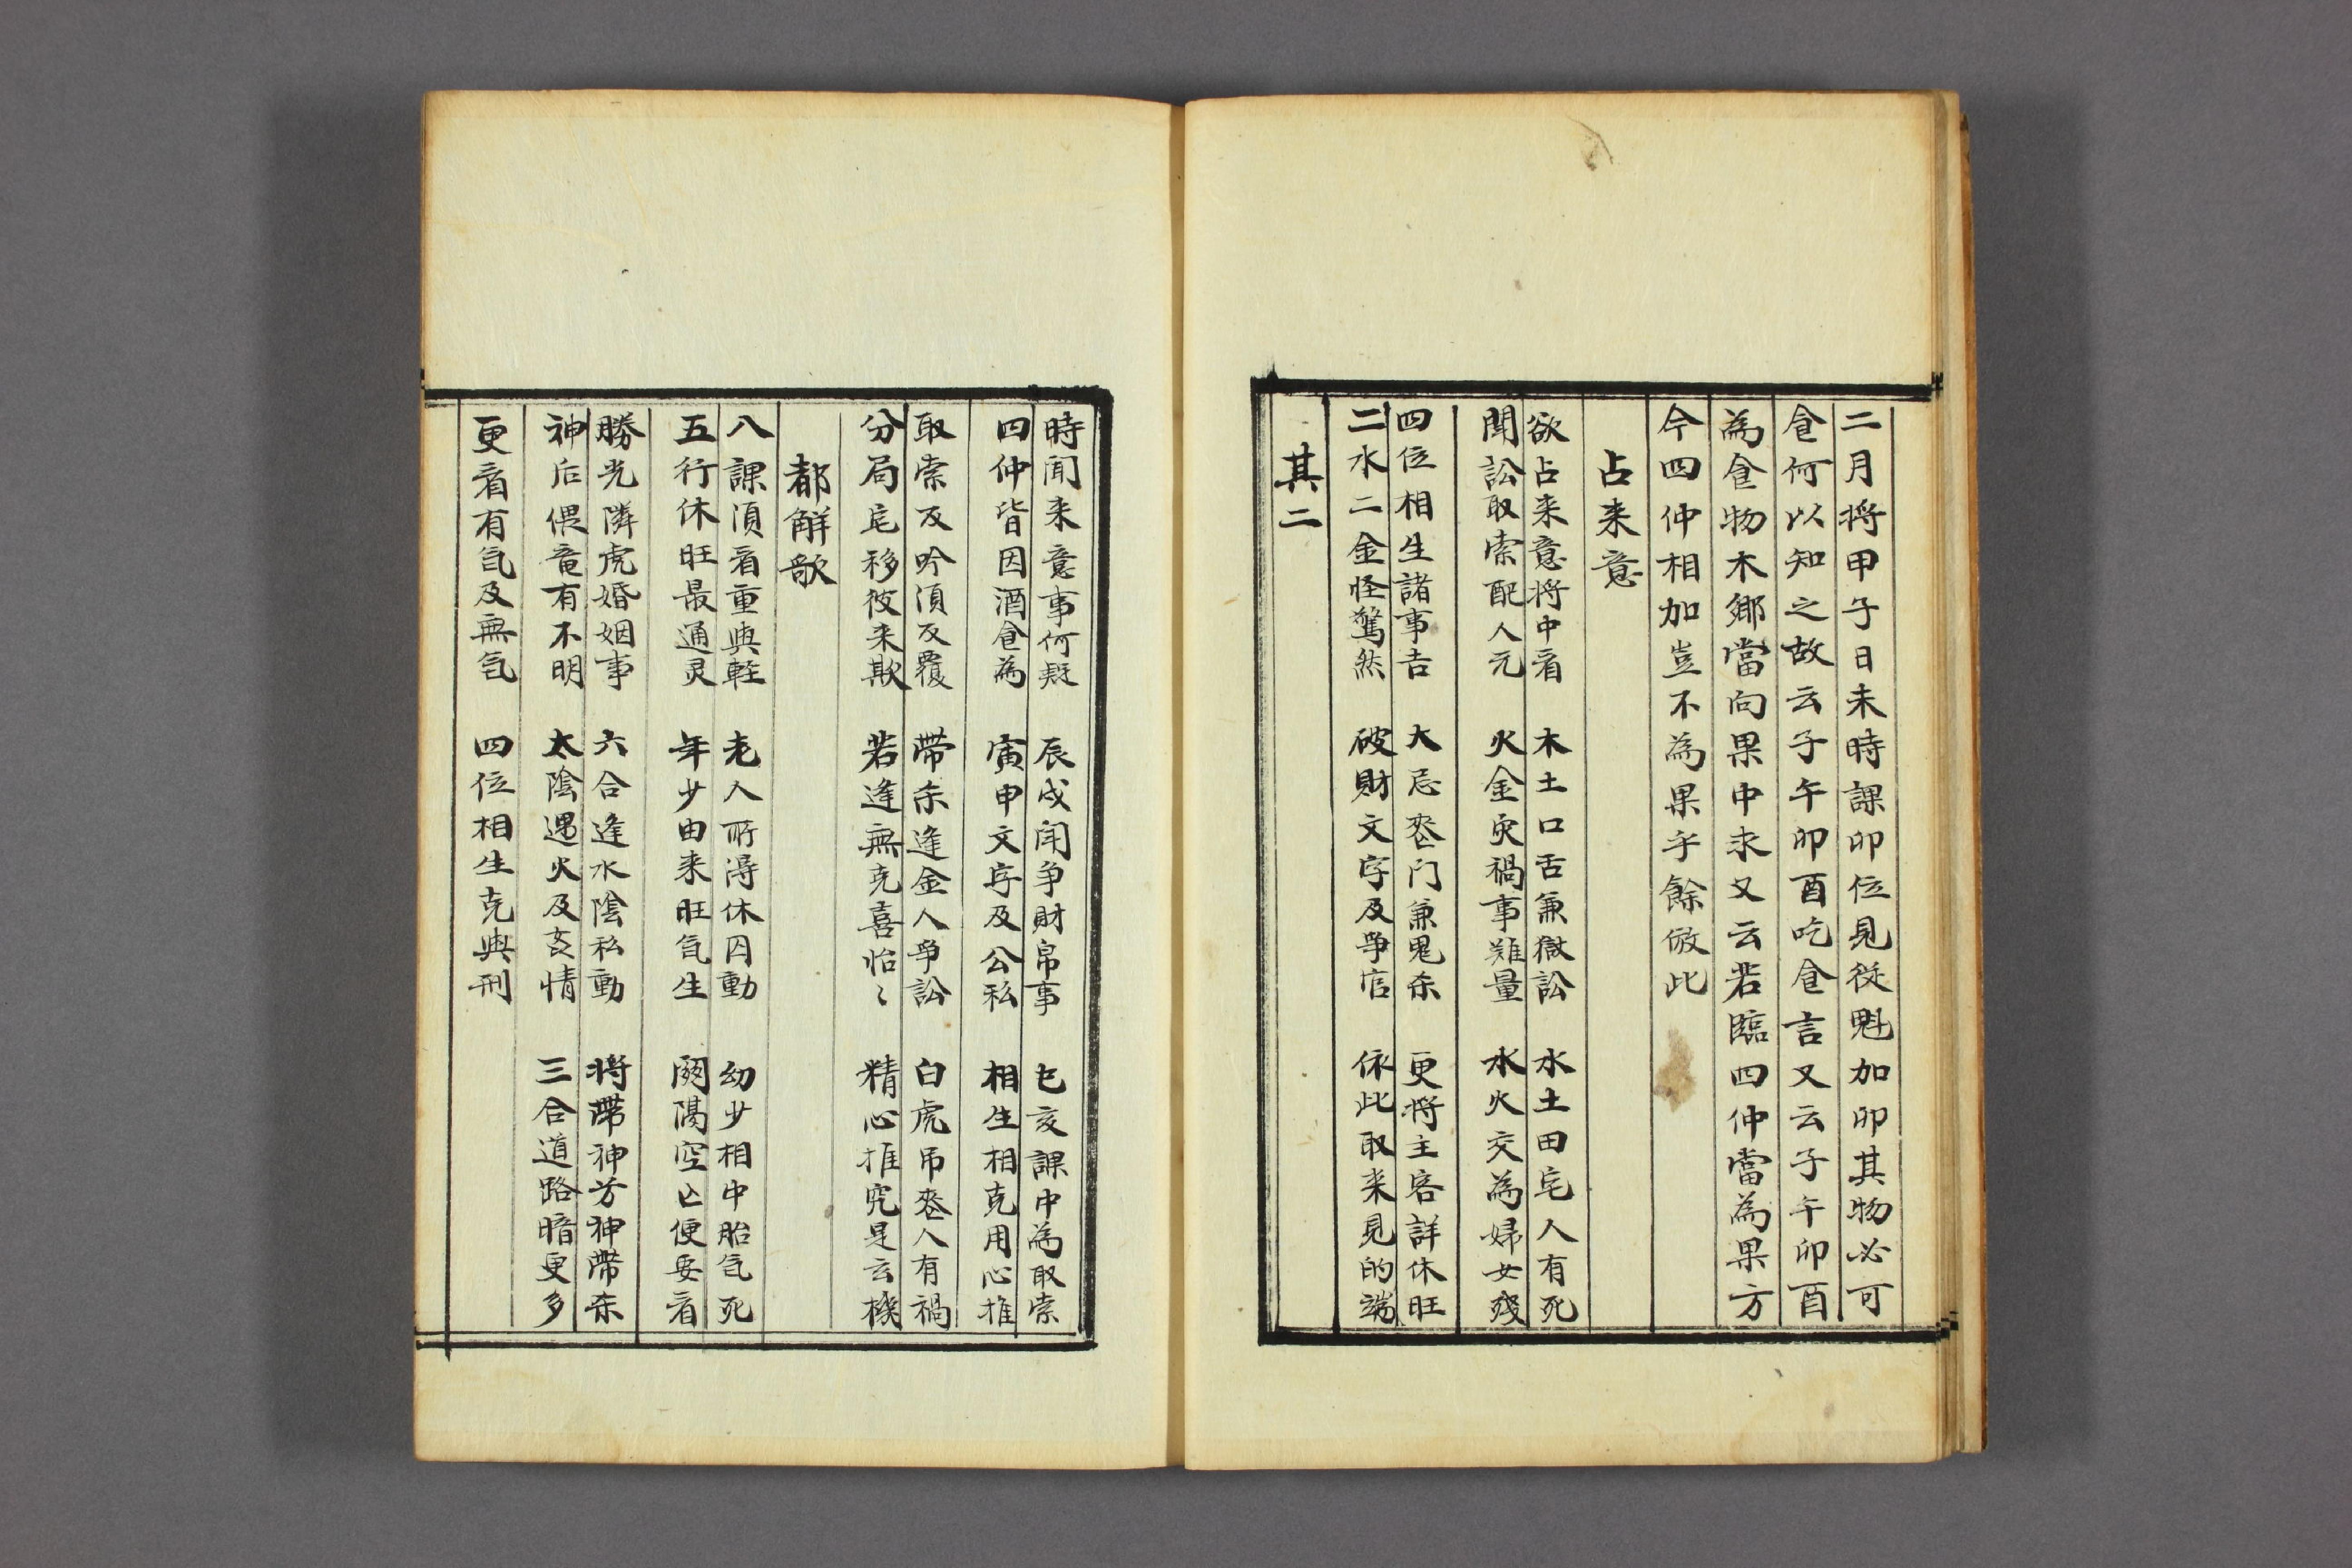 二月将甲子日未時課卯位見従魁加卯其物必可
食何以知之故云子午卯酉吃食言又云子午卯酉
為食物木鄉當向果中求又云若臨四仲當為果方
今四仲相加豈不為果乎餘倣此
占来意
欲占来意将中看 木土口舌兼獄訟 水土田宅人有死
聞訟取索配人元 火金灾禍事難量 水火交為婦女殘
四位相生諸事吉 大忌丧门兼鬼杀 更将主客詳休旺
二水二金怪驚然 破財文字及争官 依此取来見的端
其二
時閒来意事何疑 辰戌闘争財帛事 巳亥課中為取索
四仲皆因酒食為 寅申文字及公私 相生相克用心推
取索反吟須反覆 帶杀逢金人争訟 白虎吊丧人有禍
分局宅移彼来欺 若逢無克喜怡〻 精心推究是玄機
都解歌
八課須看重與輊 老人所得休囚動 幼少相中胎气死
五行休旺最通灵 年少由来旺气生 関隔空亡便要看
勝光隣虎婚姻事 六合逢水陰私動 将帶神芳神帶杀
神后偎竜有不明 太陰遇火及亥情 三合道路暗更多
更看有气及無气 四位相生克與刑